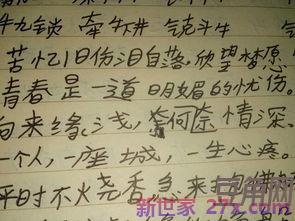 牛九锁 牵牛 锐斗牛
苦忆旧伤泪自落,欣望梦愿
青春是一道明媚的忧伤。
向来缘浅,奈何奈情深。
一个人,一座城,一生心疼。
平时不火烧香急来
新世家 272.com